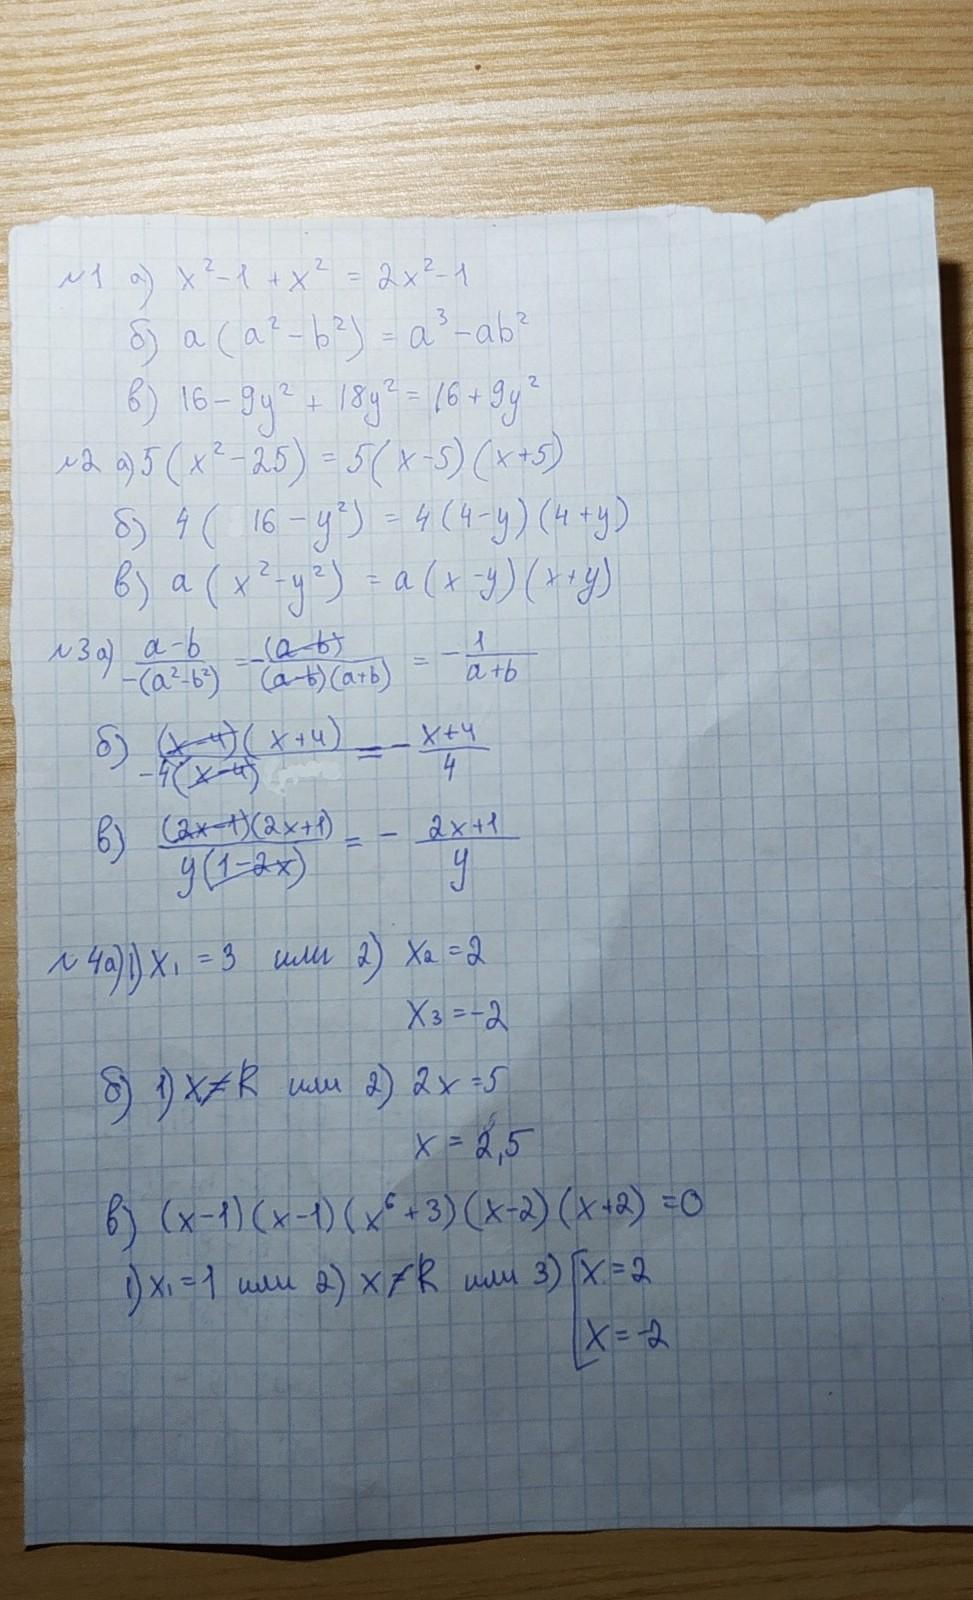 №1 а) x² - 1 + x² = 2x² - 1
б) a (a² - b²) = a³ - ab²
в) 16 - 9y² + 18y² = 16 + 9y²
№2 а) 5 (x² - 25) = 5 (x - 5) (x + 5)
б) 4 ( 16 - y²) = 4 (4 - y) (4 + y)
в) a (x² - y²) = a (x - y) (x + y)
№3 а) (a - b)/(-(a² - b²)) = -(a - b)/((a - b)(a + b)) = - 1/(a + b)
б) ((x - 4)(x + 4))/(-4(x - 4)) = - (x + 4)/4
в) ((2x - 1)(2x + 1))/(y(1 - 2x)) = - (2x + 1)/y
№4 а) 1) x₁ = 3 или 2) x₂ = 2
x₃ = -2
б) 1) x ≠ R или 2) 2x = 5
x = 2,5
в) (x - 1) (x - 1) (x⁶ + 3) (x - 2) (x + 2) = 0
1) x₁ = 1 или 2) x ≠ R или 3) [x = 2
x = -2